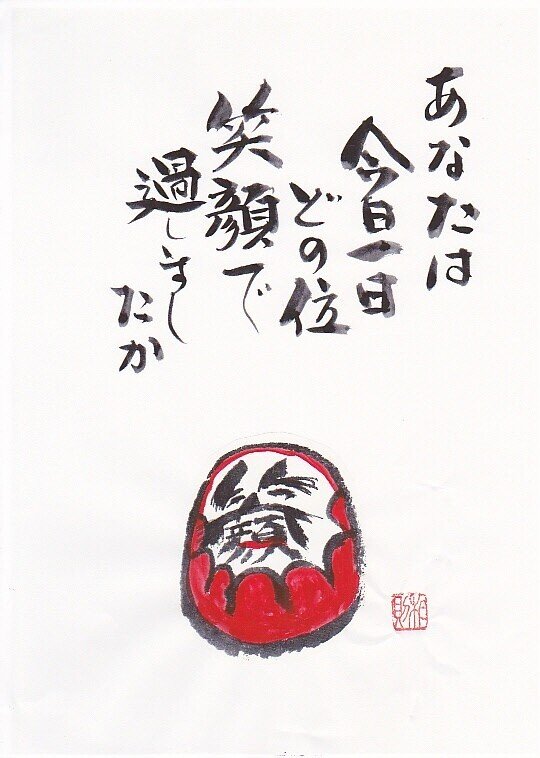 あなたは
今日一日
どの位
笑顔で
過しまし
たか
笑顔